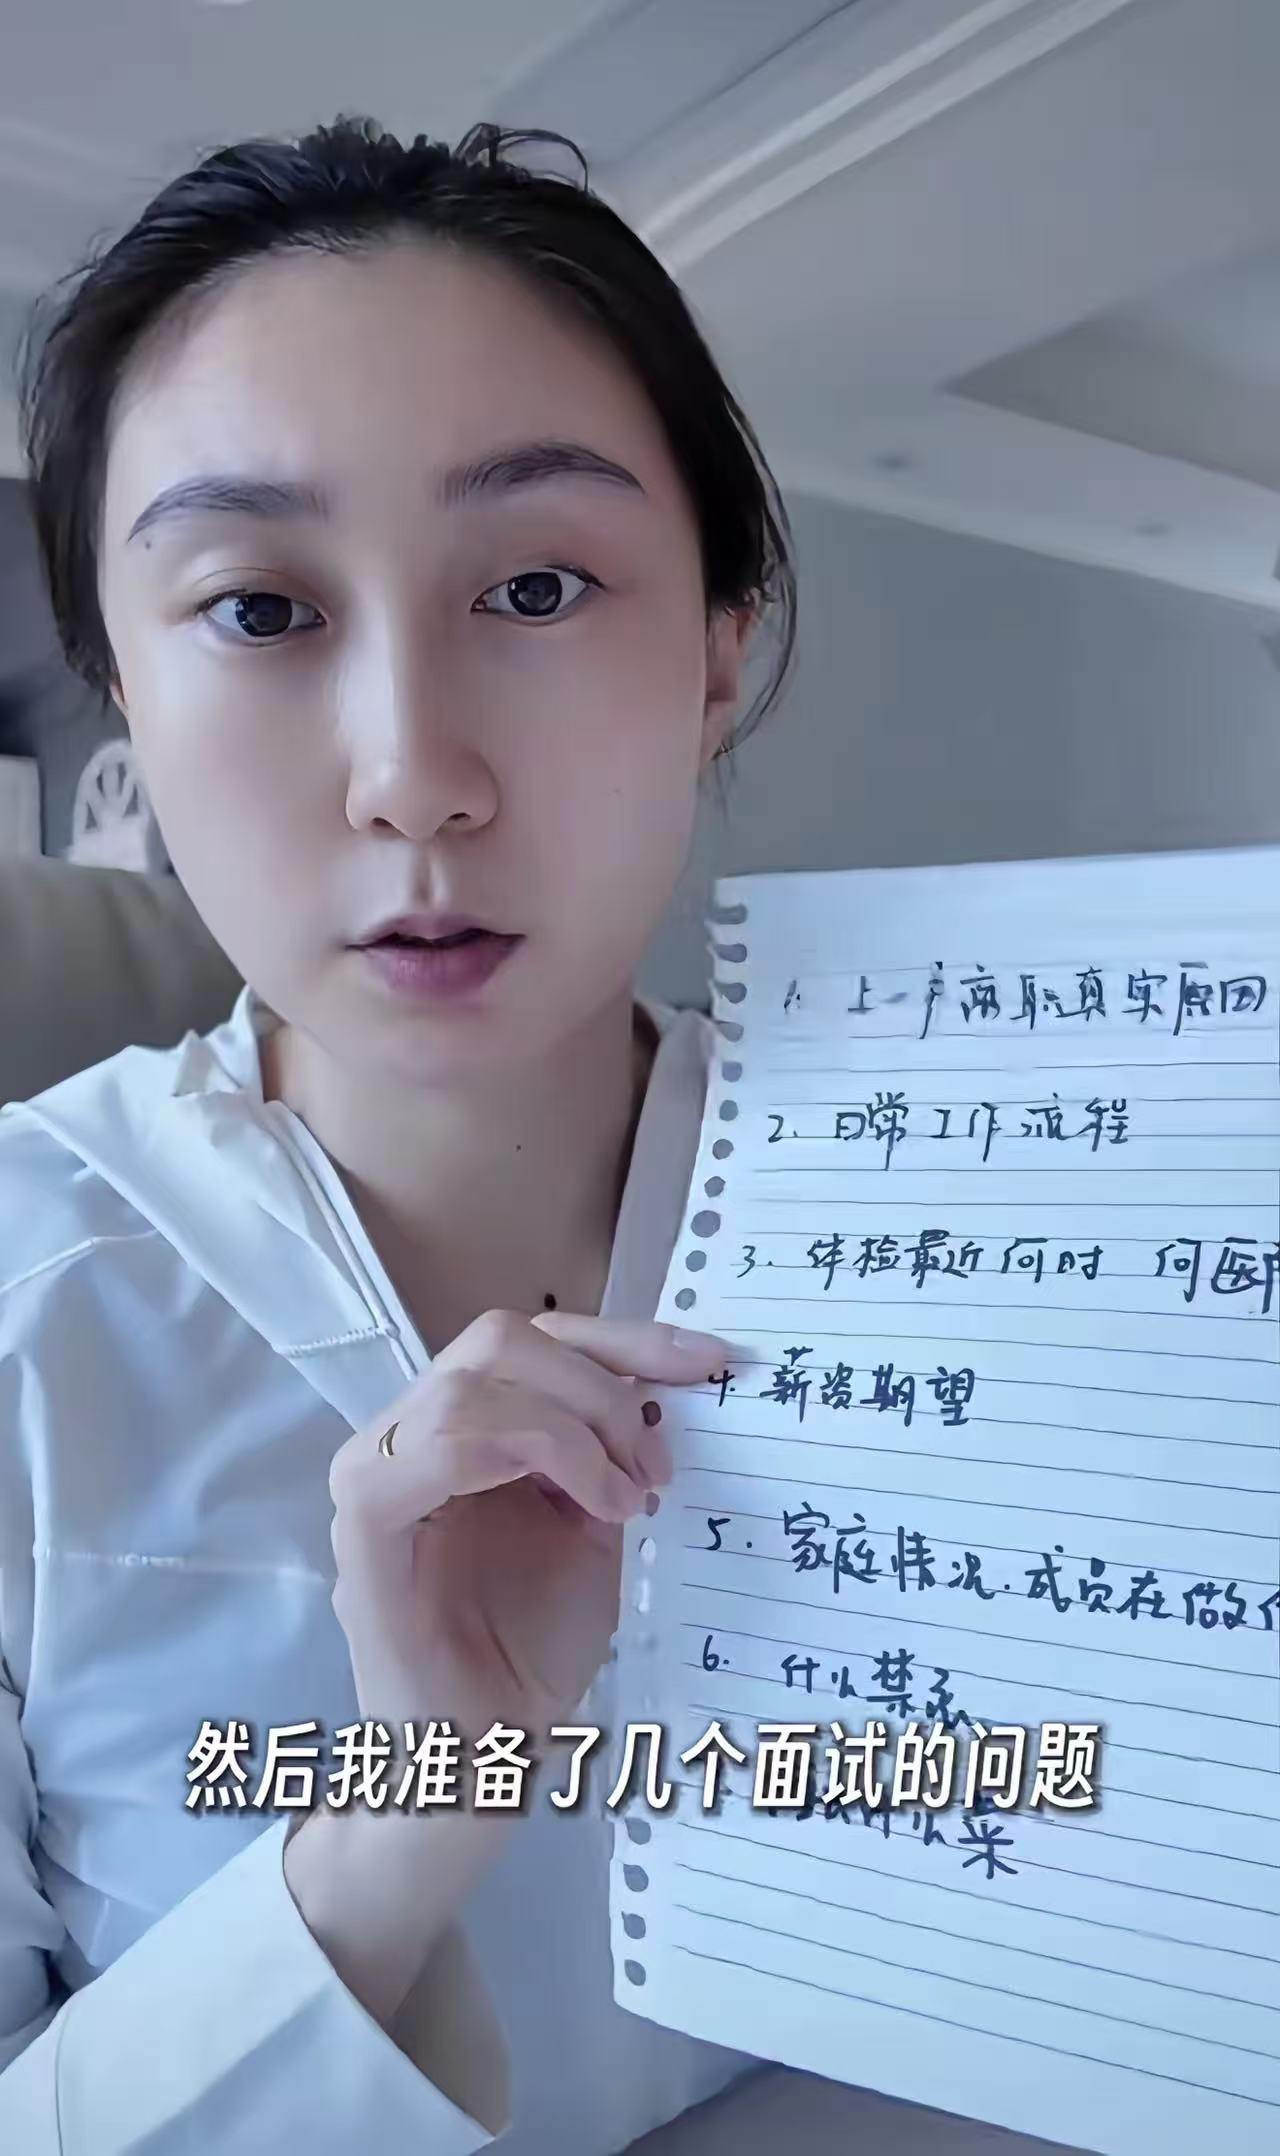 1. 上一户离职真实原因
2. 日常工作流程
3. 体检最近何时 何医
4. 薪资期望
5. 家庭情况.成员在做
6. 什么禁忌
然后我准备了几个面试的问题
什么菜